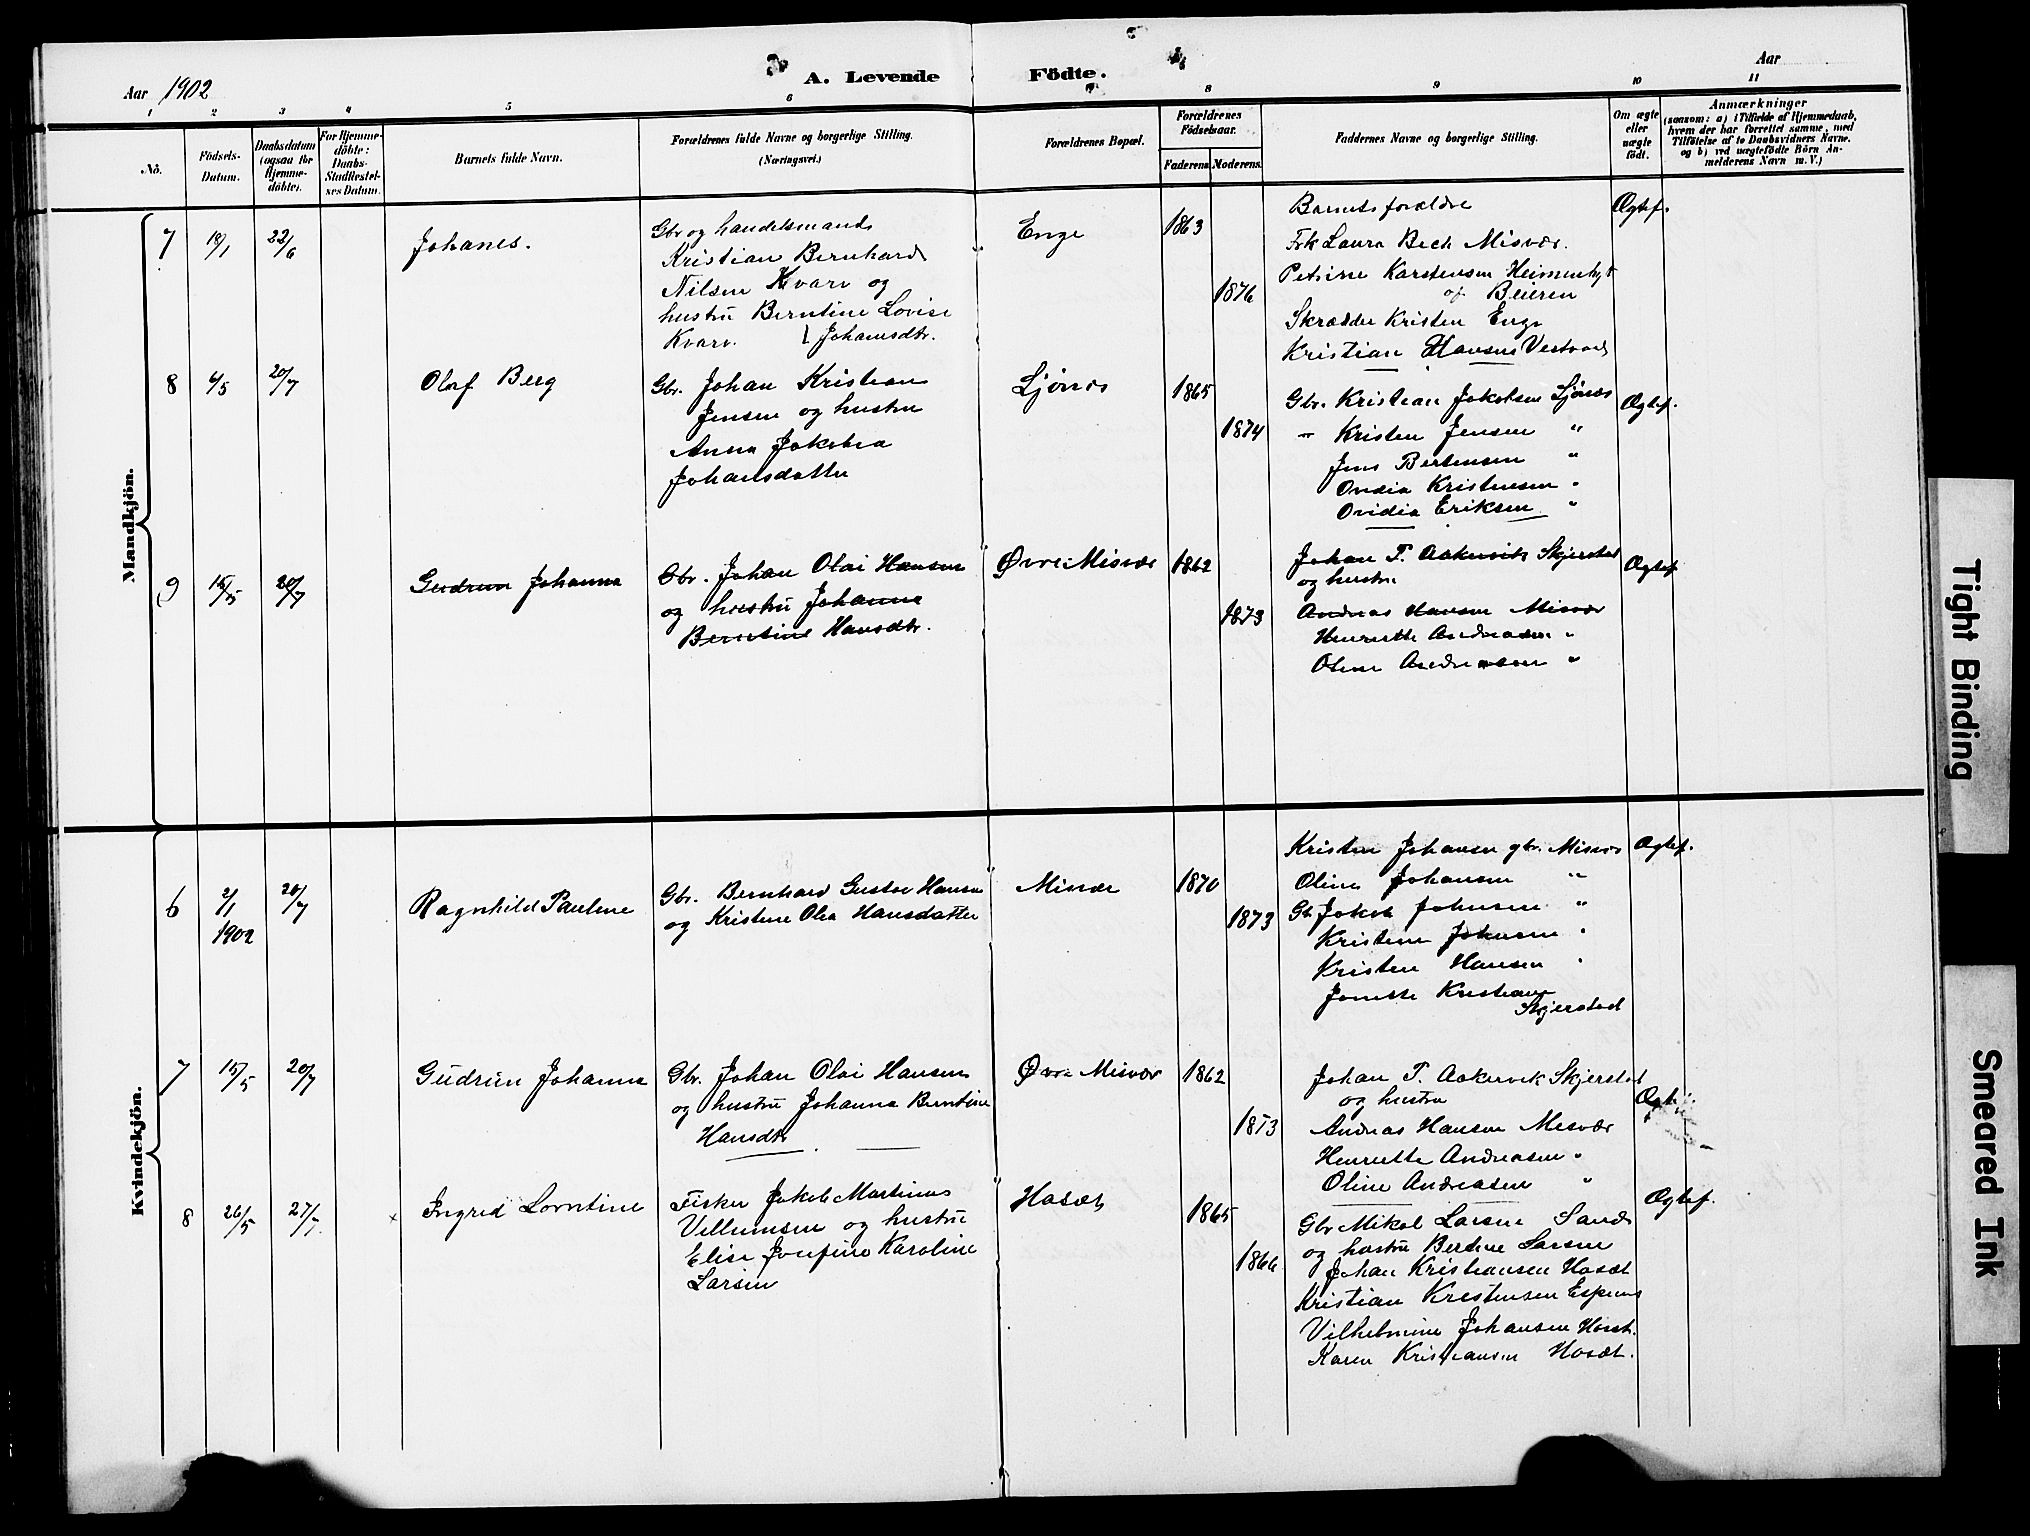 Aar 1902
A. Levende Födte.
Aar
1 2 3 4 5 6 7 8 9 10 11
No.
Födsels-Datum.
Daabsdatum (ogsaa for Hjemme-döbte).
For Hjemme-döbte: Daabs-Stadfæstel-ses Datum.
Barnets fulde Navn.
Forældrenes fulde Navne og borgerlige Stilling.
(Næringsvei.)
Forældrenes Bopæl.
Forældrenes Födselsaar.
Faderens. Moderens.
Faddernes Navne og borgerlige Stilling.
Om ægte eller uægte födt.
Anmærkninger
(saasom: a) i Tilfælde af Hjemmedaab, hvem der har forrettet samme, med Tilföielse af to Daabsvidners Navne, og b) ved uægtefödte Börn An-melderens Navn m. V.)
Mandkjön.
7 18/1 22/6 Johanes.
Gbr og handelsmand
Kristian Bernhard
Nilsen Kvarv og
hustru Berntine Lovise
Kvarv. Johansdtr.
Enge 1863
1876
Barnets forældre
Frk Laura Bech Misvær.
Petrine Karstensen
af Beieren
Skrædder Kristen Enge
Kristian Hansen
Ægtef.
8 6/5 20/7 Olaf Berg
Gbr. Johan Kristian
Jensen og hustru
Anna Jakobea
Johansdatter
Ljönes 1865
1874
Gbr. Kristian Jakobsen Ljönes
" Kristen Jensen "
Jens Bertensen "
Ovidia Kristensen "
Ovidia Eriksen "
Ægtef.
9 15/5 20/7 Gudrun Johanna
Gbr. Johan Olai Hansen
og hustru Johanna
Berntine Hansdtr.
Øvre Misvær 1862
1873
Johan T. Aakervik Skjerstad
og hustru
Andreas Hansen Misvær
Henriette Andreasen "
Oline Andreasen "
Ægtef
Kvindekjön.
6 2/1 1902 20/7 Ragnhild Pauline
Gbr. Bernhard Gustav Hansen
og Kristine Olea Hansdatter
Misvær 1870
1873
Kristen Johansen gbr. Misvær
Oline Johansen "
Gb. Jakob Johnsen "
Kristine Johnsen "
Kristen Hansen "
Jonette Kristians
Skjerstad
Ægtef.
7 15/5 20/7 Gudrun Johanna
Gbr. Johan Olai Hansen
og hustru Johanna Berntine
Hansdtr
Øvre Misvær 1862
1873
Johan T. Aakervik Skjerstad
og hustru
Andreas Hansen Misvær
Henriette Andreasen "
Oline Andreasen "
Ægtef
8 26/5 27/7 x Ingrid Lorntine
Fisker Jakob Martinus
Villumsen og hustru
Elise Josefine Karoline
Larsen
Hosæt 1865
1866
Gbr Mikal Larsen Sand
og hustru Berdine Larsen
Johan Kristiansen Hosæt
Kristian Kristensen Espenes
Vilhelmine Johansen Hosæt.
Karen Kristiansen Hosæt.
Ægtef.
Tight Binding
Smeared Ink